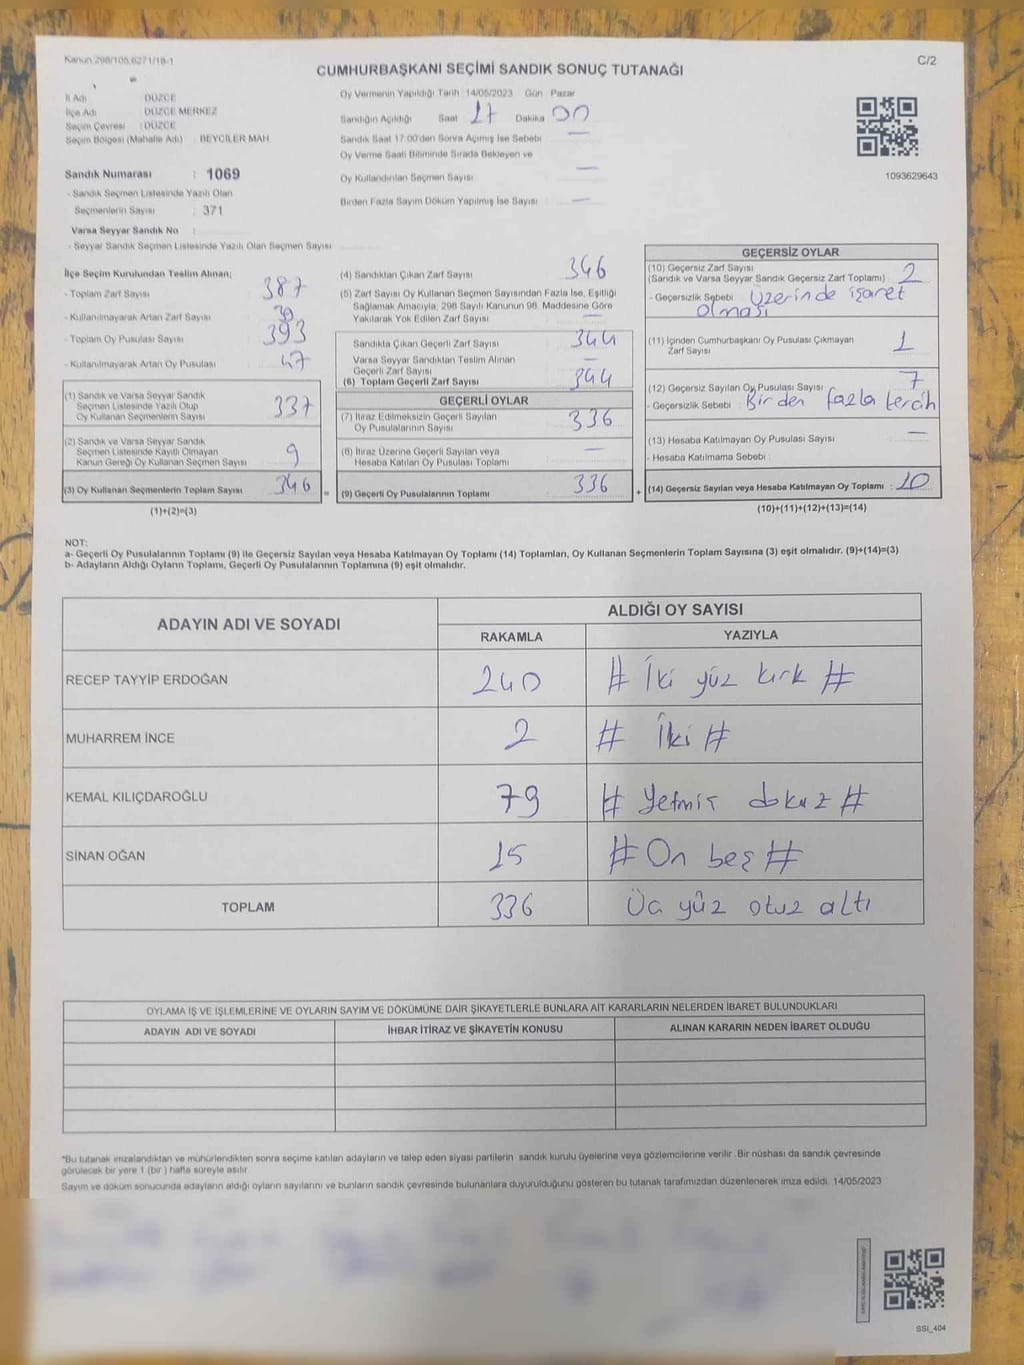 Kanun 298/105,6271/18-1
C/2
CUMHURBAŞKANI SEÇİMİ SANDIK SONUÇ TUTANAĞI
İl Adı : DÜZCE
İlçe Adı : DÜZCE MERKEZ
Seçim Çevresi : DÜZCE
Seçim Bölgesi (Mahalle Adı) : BEYCİLER MAH
Sandık Numarası : 1069
- Sandık Seçmen Listesinde Yazılı Olan
Seçmenlerin Sayısı : 371
Varsa Seyyar Sandık No :
- Seyyar Sandık Seçmen Listesinde Yazılı Olan Seçmen Sayısı
Oy Vermenin Yapıldığı Tarih :14/05/2023 Gün : Pazar
Sandığın Açıldığı Saat 17 Dakika 00
Sandık Saat 17:00'den Sonra Açılmış İse Sebebi —
Oy Verme Saati Bitiminde Sırada Bekleyen ve
Oy Kullandırılan Seçmen Sayısı —
Birden Fazla Sayım Döküm Yapılmış İse Sayısı : —
1093629643
İlçe Seçim Kurulundan Teslim Alınan;
- Toplam Zarf Sayısı 387
- Kullanılmayarak Artan Zarf Sayısı
- Toplam Oy Pusulası Sayısı 393
- Kullanılmayarak Artan Oy Pusulası 47
(1) Sandık ve Varsa Seyyar Sandık
Seçmen Listesinde Yazılı Olup
Oy Kullanan Seçmenlerin Sayısı 337
(2) Sandık ve Varsa Seyyar Sandık
Seçmen Listesinde Kayıtlı Olmayan
Kanun Gereği Oy Kullanan Seçmen Sayısı 9
(3) Oy Kullanan Seçmenlerin Toplam Sayısı 346 =
(1)+(2)=(3)
(4) Sandıktan Çıkan Zarf Sayısı 346
(5) Zarf Sayısı Oy Kullanan Seçmen Sayısından Fazla İse, Eşitliği
Sağlamak Amacıyla, 298 Sayılı Kanunun 98. Maddesine Göre
Yakılarak Yok Edilen Zarf Sayısı —
Sandıkta Çıkan Geçerli Zarf Sayısı 344
Varsa Seyyar Sandıktan Teslim Alınan
Geçerli Zarf Sayısı —
(6) Toplam Geçerli Zarf Sayısı 344
GEÇERLİ OYLAR
(7) İtiraz Edilmeksizin Geçerli Sayılan
Oy Pusulalarının Sayısı 336
(8) İtiraz Üzerine Geçerli Sayılan veya
Hesaba Katılan Oy Pusulası Toplamı —
(9) Geçerli Oy Pusulalarının Toplamı 336 +
GEÇERSİZ OYLAR
(10) Geçersiz Zarf Sayısı
(Sandık ve Varsa Seyyar Sandık Geçersiz Zarf Toplamı) : 2
- Geçersizlik Sebebi : Üzerinde işaret
olması
(11) İçinden Cumhurbaşkanı Oy Pusulası Çıkmayan
Zarf Sayısı 1
(12) Geçersiz Sayılan Oy Pusulası Sayısı 7
- Geçersizlik Sebebi : Birden fazla tercih
(13) Hesaba Katılmayan Oy Pusulası Sayısı —
- Hesaba Katılmama Sebebi
(14) Geçersiz Sayılan veya Hesaba Katılmayan Oy Toplamı : 10
(10)+(11)+(12)+(13)=(14)
NOT:
a- Geçerli Oy Pusulalarının Toplamı (9) ile Geçersiz Sayılan veya Hesaba Katılmayan Oy Toplamı (14) Toplamları, Oy Kullanan Seçmenlerin Toplam Sayısına (3) eşit olmalıdır. (9)+(14)=(3)
b- Adayların Aldığı Oyların Toplamı, Geçerli Oy Pusulalarının Toplamına (9) eşit olmalıdır.
ADAYIN ADI VE SOYADI
ALDIĞI OY SAYISI
RAKAMLA YAZIYLA
RECEP TAYYİP ERDOĞAN 240 # İki yüz kırk #
MUHARREM İNCE 2 # İki #
KEMAL KILIÇDAROĞLU 79 # Yetmiş dokuz #
SİNAN OĞAN 15 # On beş #
TOPLAM 336 Üç yüz otuz altı
OYLAMA İŞ VE İŞLEMLERİNE VE OYLARIN SAYIM VE DÖKÜMÜNE DAİR ŞİKAYETLERLE BUNLARA AİT KARARLARIN NELERDEN İBARET BULUNDUKLARI
ADAYIN ADI VE SOYADI İHBAR İTİRAZ VE ŞİKAYETİN KONUSU ALINAN KARARIN NEDEN İBARET OLDUĞU
*Bu tutanak imzalandıktan ve mühürlendikten sonra seçime katılan adayların ve talep eden siyasi partilerin sandık kurulu üyelerine veya gözlemcilerine verilir .Bir nüshası da sandık çevresinde
görülecek bir yere 1 (bir ) hafta süreyle asılır.
Sayım ve döküm sonucunda adayların aldığı oyların sayılarını ve bunların sandık çevresinde bulunanlara duyurulduğunu gösteren bu tutanak tarafımızdan düzenlenerek imza edildi. 14/05/2023
SSI_404